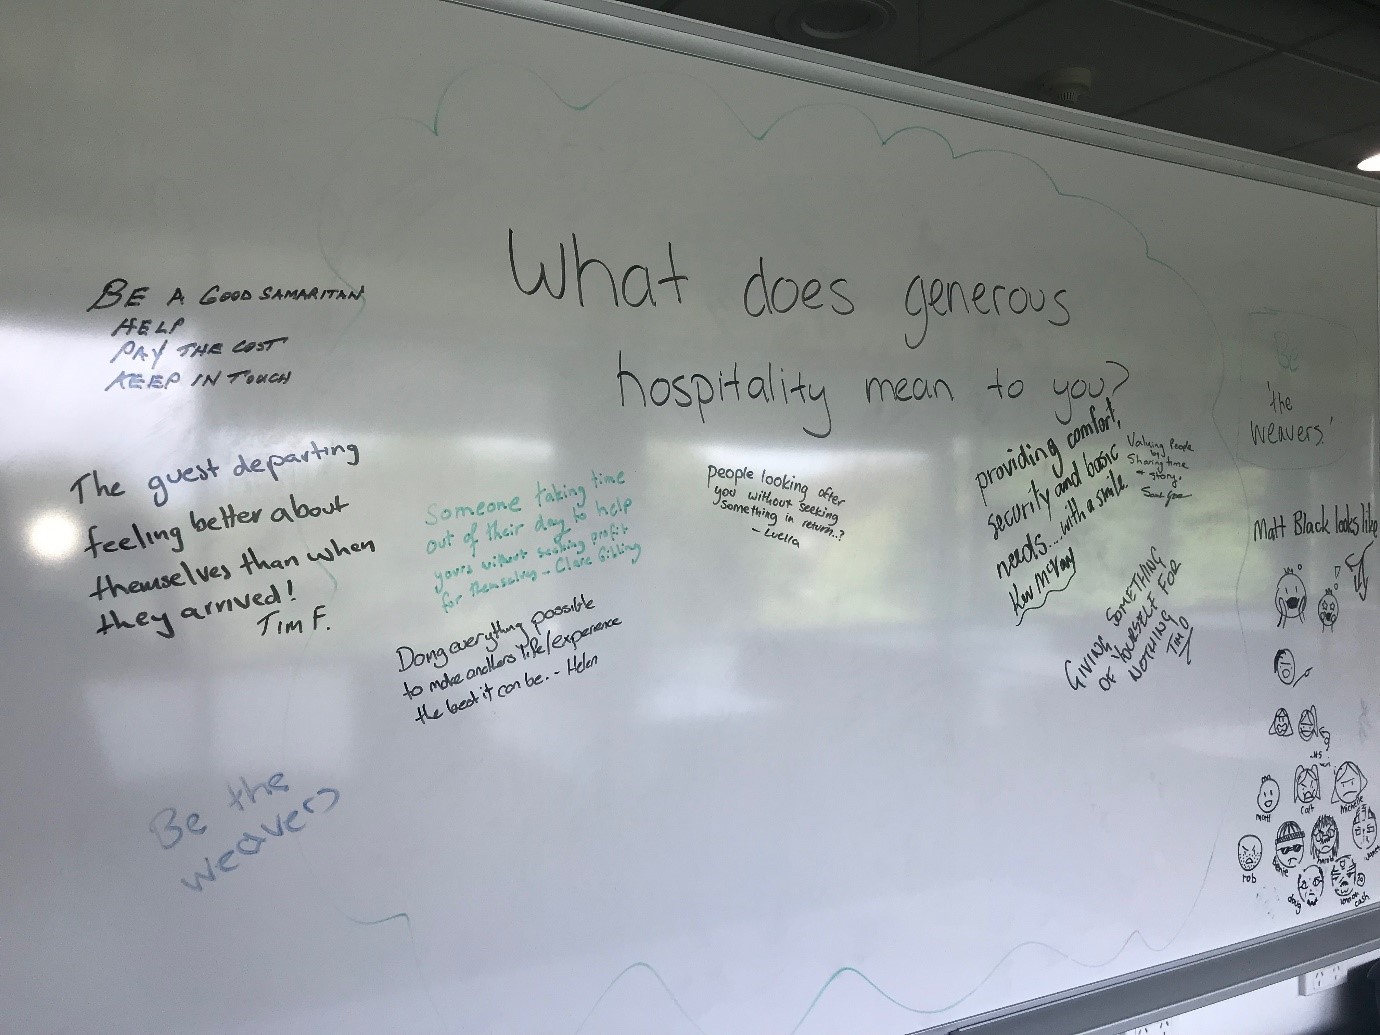 What does generous
hospitality mean to you?
BE A GOOD SAMARITAN
HELP
PAY THE COST
KEEP IN TOUCH
The guest departing
feeling better about
themselves than when
they arrived!
Tim F.
Someone taking time
out of their day to help
yours without seeking profit
for themselves - Clare Gibling
Doing everything possible
to make anothers life/experience
the best it can be. - Helen
People looking after
you without seeking
something in return..?
- Luella
providing comfort,
security and basic
needs.... with a smile
Valuing People
by
Sharing time
+ story,
GIVING SOMETHING
OF YOURSELF FOR
NOTHING
TIM O
Be
'the
weavers.'
Matt Black looks like
Be the
weavers
matt
Cait
Michelle
rob
doug
cash